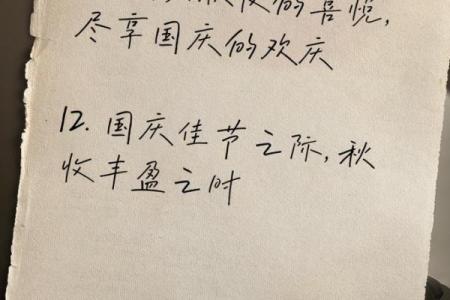 的喜悦,
尽享国庆的欢庆
12. 国庆佳节之际,秋
收丰盈之时